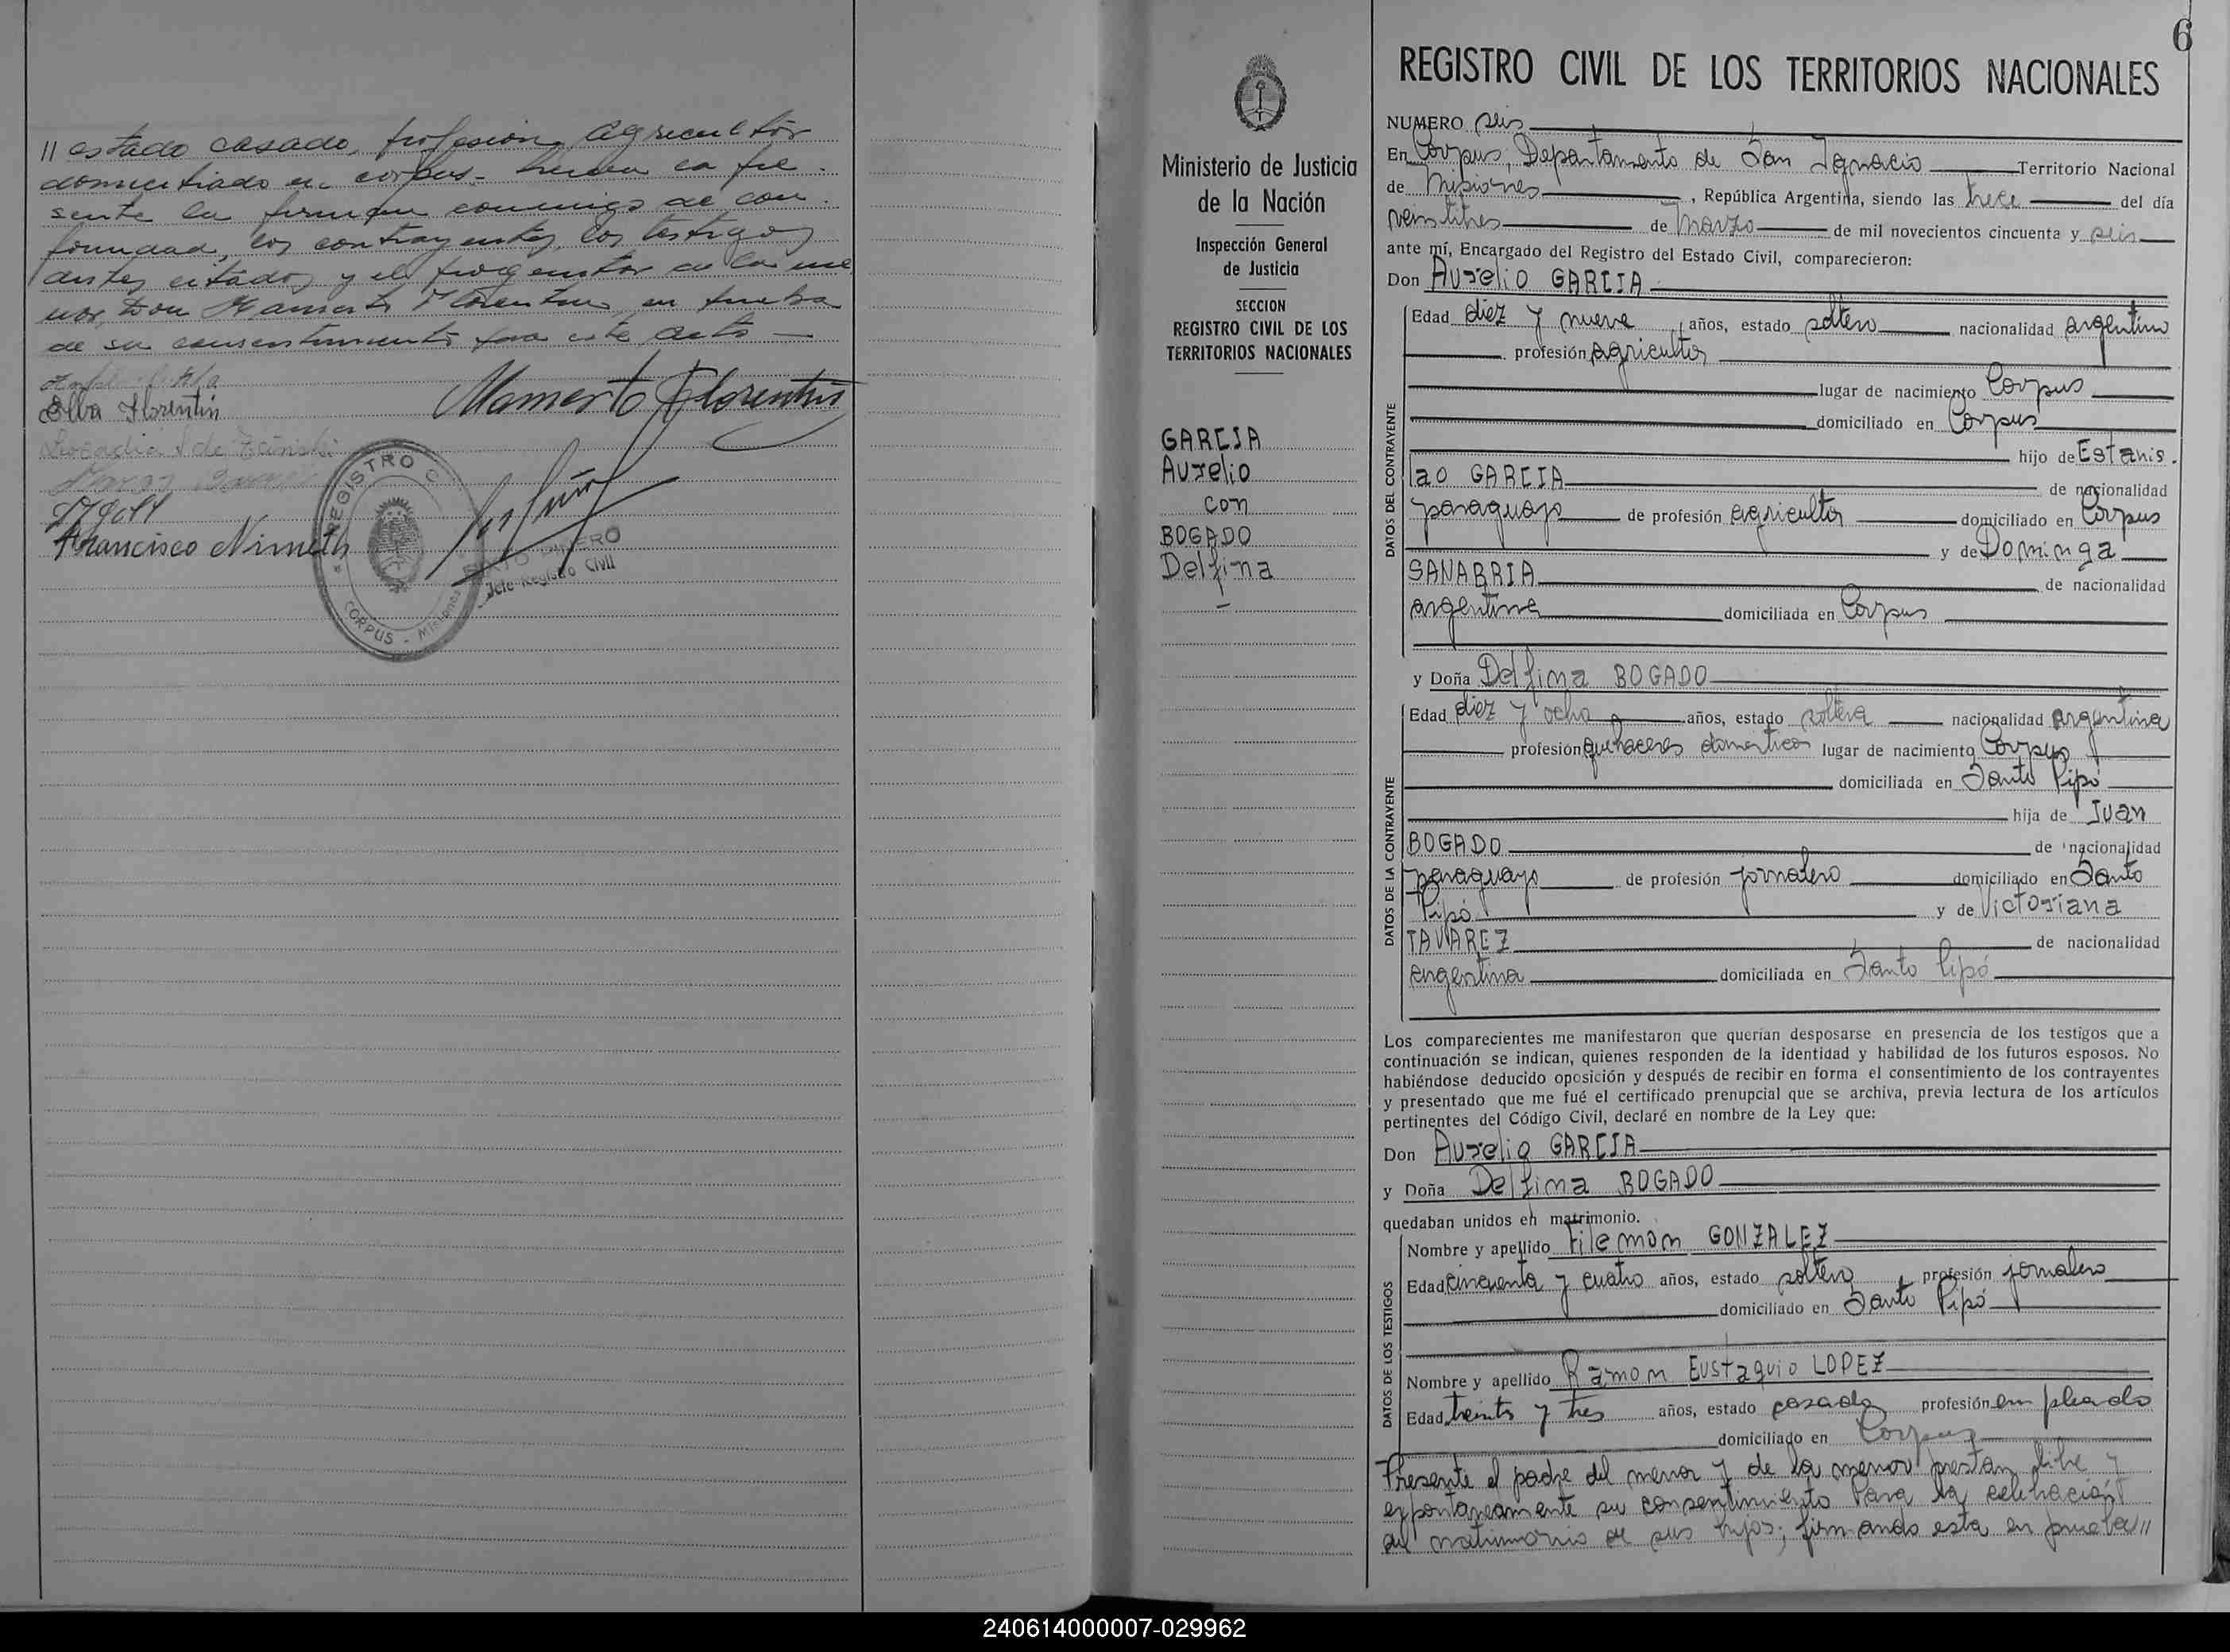 // estado casado, profesion Agricultor
domiciliado en corpus.- Leida la pre-
sente la firman conmigo de con-
formidad, los contrayentes, los testigos
antes citados y el progenitor de la me
nor, Don Mamerto Florentin en prueba
de su consentimiento para este acto
Elba Florentín
Mamerto Florentin
Francisco Nimeth
REGISTRO C
CORPUS - Misiones
Jefe Registro Civil
6
Ministerio de Justicia
de la Nación
Inspección General
de Justicia
SECCION
REGISTRO CIVIL DE LOS
TERRITORIOS NACIONALES
GARCIA
Aurelio
con
BOGADO
Delfina
REGISTRO CIVIL DE LOS TERRITORIOS NACIONALES
NUMERO seis
En Corpus, Departamento de San Ignacio Territorio Nacional
de Misiones, República Argentina, siendo las trece del día
veintitres de Marzo de mil novecientos cincuenta y seis
ante mí, Encargado del Registro del Estado Civil, comparecieron:
Don Aurelio GARCIA
DATOS DEL CONTRAYENTE
Edad diez y nueve años, estado soltero nacionalidad argentino
profesión Agricultor
lugar de nacimiento Corpus
domiciliado en Corpus
hijo de Estanis-
lao GARCIA de nacionalidad
paraguayo de profesión agricultor domiciliado en Corpus
y de Dominga
SANABRIA de nacionalidad
argentina domiciliada en Corpus
y Doña Delfina BOGADO
DATOS DE LA CONTRAYENTE
Edad diez y ocho años, estado soltera nacionalidad Argentina
profesión quehaceres domesticos lugar de nacimiento Corpus
domiciliada en Santo Pipó
hija de Juan
BOGADO de nacionalidad
paraguayo de profesión jornalero domiciliado en Santo
Pipó y de Victoriana
TAVAREZ de nacionalidad
argentina domiciliada en Santo Pipó
Los comparecientes me manifestaron que querían desposarse en presencia de los testigos que a
continuación se indican, quienes responden de la identidad y habilidad de los futuros esposos. No
habiéndose deducido oposición y después de recibir en forma el consentimiento de los contrayentes
y presentado que me fué el certificado prenupcial que se archiva, previa lectura de los artículos
pertinentes del Código Civil, declaré en nombre de la Ley que:
Don Aurelio GARCIA
y Doña Delfina BOGADO
quedaban unidos en matrimonio.
DATOS DE LOS TESTIGOS
Nombre y apellido Filemon GONZALEZ
Edad cincuenta y cuatro años, estado soltero, profesión jornalero
domiciliado en Santo Pipó
Nombre y apellido Ramon Eustaquio LOPEZ
Edad treinta y tres años, estado casado profesión empleado
domiciliado en Corpus
Presente el padre del menor y de la menor prestan libre y
espontaneamente su consentimiento para la celebración
del matrimonio de sus hijos; firmando esta en prueba//
240614000007-029962